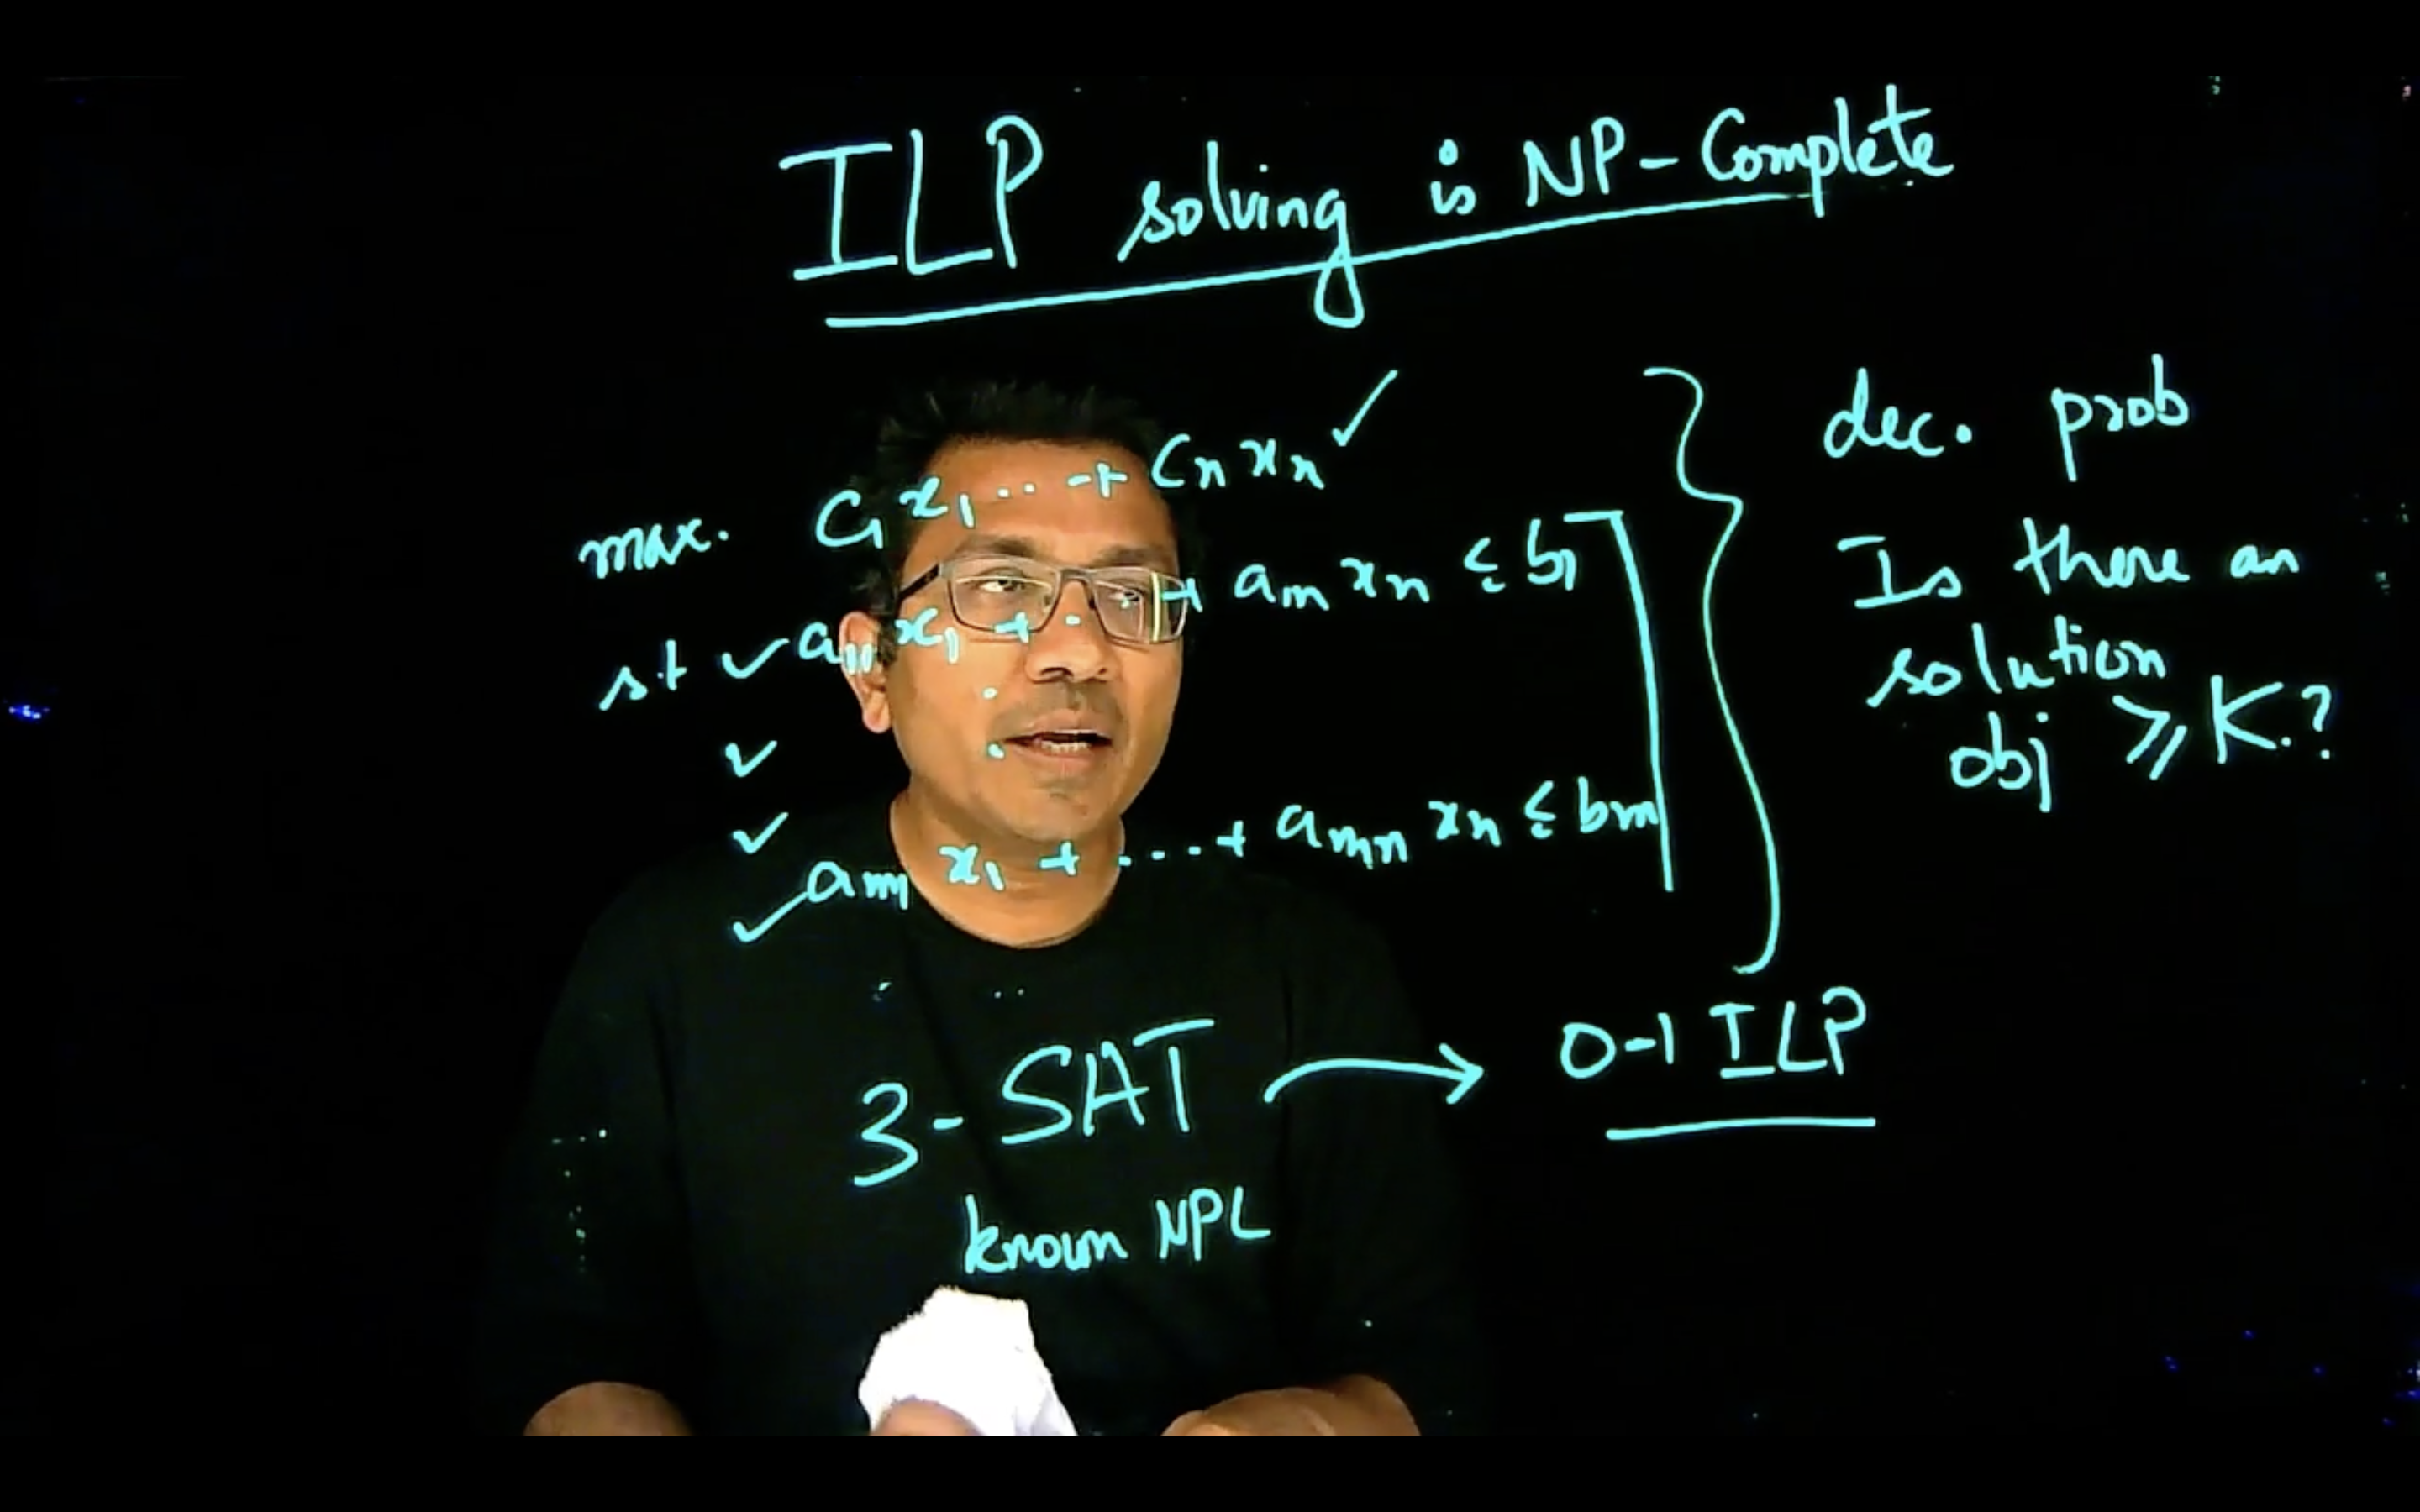 ILP solving is NP-Complete
max. C1 x1 .. + Cn xn ✓
st ✓ a11 x1 + . . + a1n xn ≤ b1
✓
✓
✓ am1 x1 + .... + amn xn ≤ bm
dec. prob
Is there an
solution
obj ≥ K.?
3-SAT → 0-1 ILP
known NPC